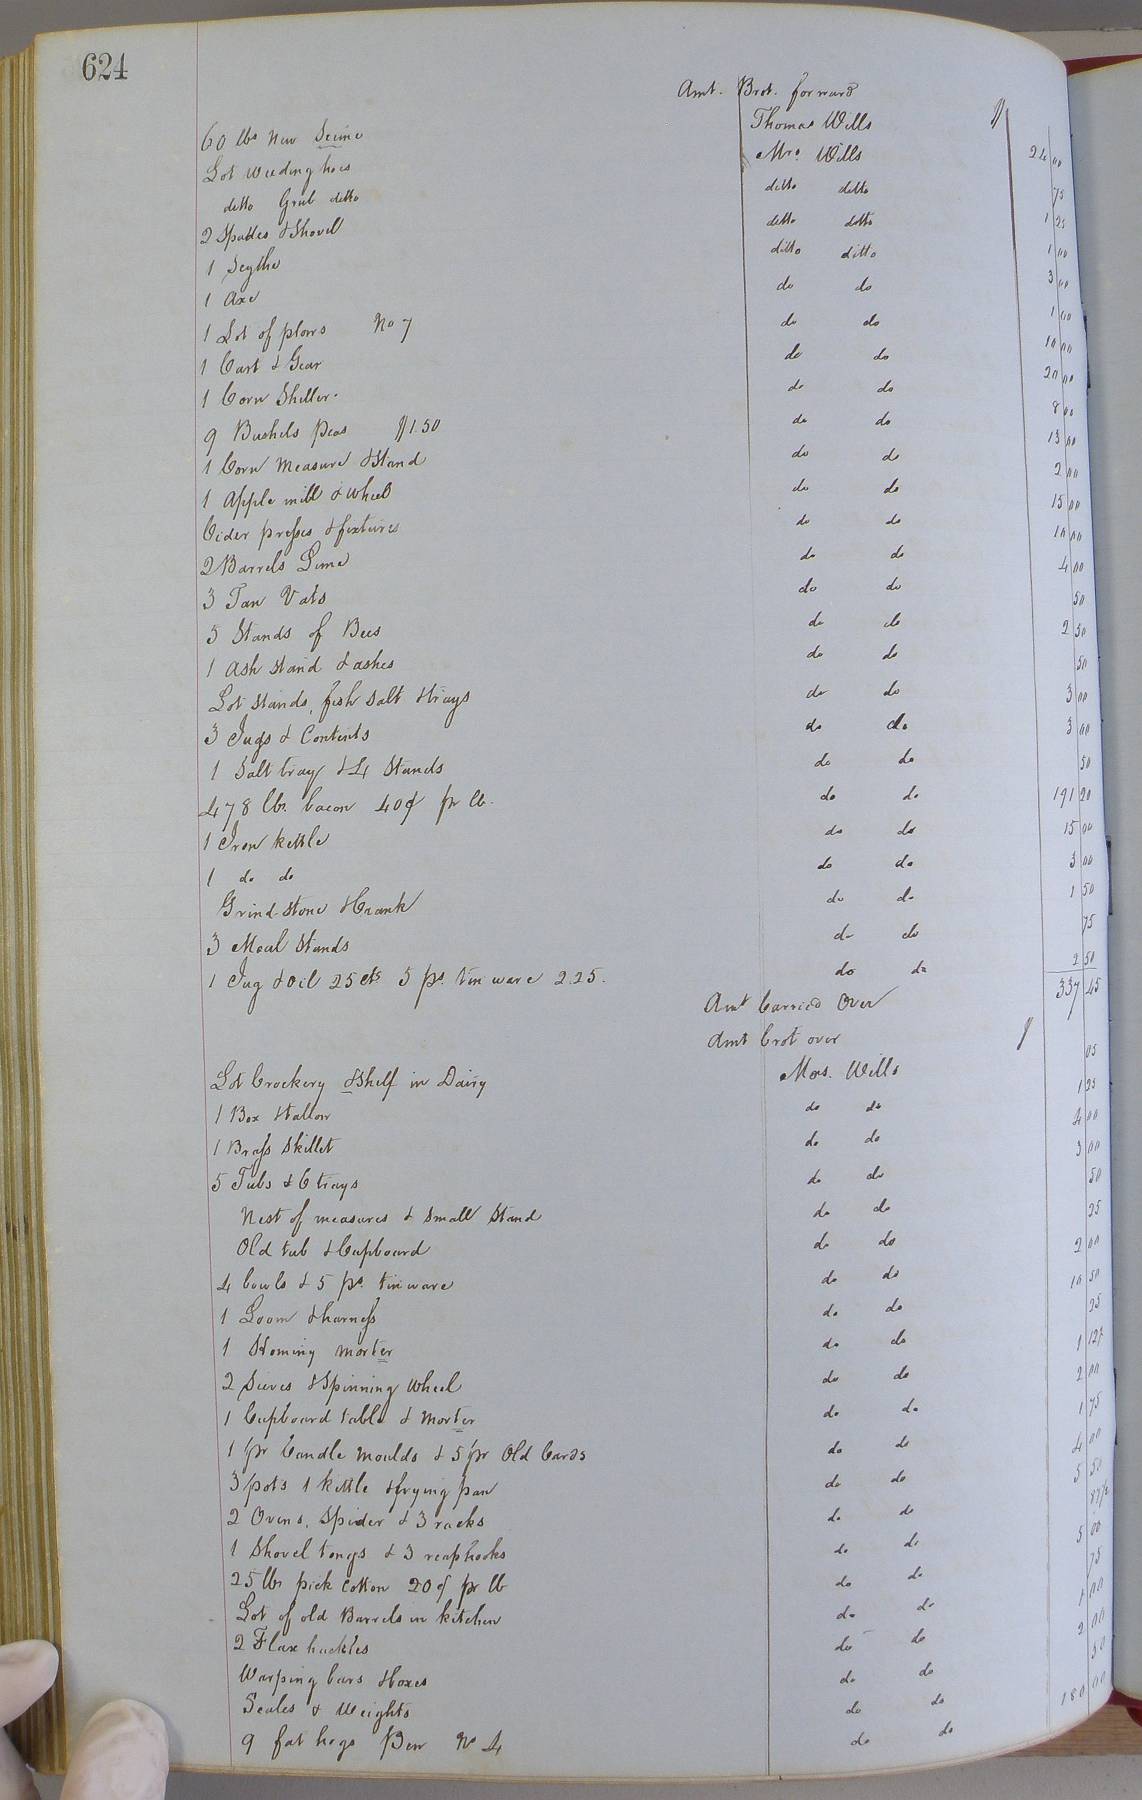 624
Amt. Brot. forward
60 lbs New Seine Thomas Wills $ 24 00
Lot weeding hoes Mrs. Wills 75
ditto Grub ditto ditto ditto 1 25
2 Spades & Shovel ditto ditto 1 00
1 Scythe ditto ditto 3 00
1 Axe do do 1 00
1 Lot of plows No 7 do do 10 00
1 Cart & Gear do do 20 00
1 Corn Sheller. do do 8 00
9 Bushels Peas $1.50 do do 13 00
1 Corn Measure & Stand do do 2 00
1 Apple mill & wheel do do 15 00
Cider presses & fixtures do do 10 00
2 Barrels Lime do do 4 00
3 Tan Vats do do 50
5 Stands of Bees do do 2 50
1 Ash stand & ashes do do 50
Lot stands, fish salt & trays do do 3 00
3 Jugs & Contents do do 3 00
1 Salt tray & 4 Stands do do 50
478 lbs. bacon 40¢ pr lb. do do 191 20
1 Iron kettle do do 15 00
1 do do do do 3 00
Grind-stone & Crank do do 1 50
3 Meal Stands do do 75
1 Jug & oil 25cts 5 ps. tin ware 2.25. do do 2 50
Amt Carried Over 337 45
Amt brot over $
Lot Crockery & Shelf in Dairy Mrs. Wills 05
1 Box & tallow do do 1 25
1 Brass Skillet do do 4 00
5 Tubs & 6 trays do do 3 00
Nest of measures & small stand do do 50
Old tub & Cupboard do do 25
4 bowls & 5 ps. tinware do do 2 00
1 Loom & harness do do 10 50
1 Homing morter do do 25
2 Sieves & Spinning wheel do do 1 12½
1 Cupboard table & morter do do 2 00
1 pr Candle moulds & 5 pr Old Cards do do 1 75
3 pots 1 kettle & frying pan do do 4 00
2 Ovens, Spider & 3 racks do do 5 50
1 Shovel tongs & 3 reaphooks do do 87½
25 lbs pick cotton 20¢ pr lb do do 5 00
Lot of old Barrels in kitchen do do 75
2 Flax hackles do do 1 00
Warping bars & boxes do do 2 00
Scales & Weights do do 50
9 fat hogs Pen No 4 do do 180 00